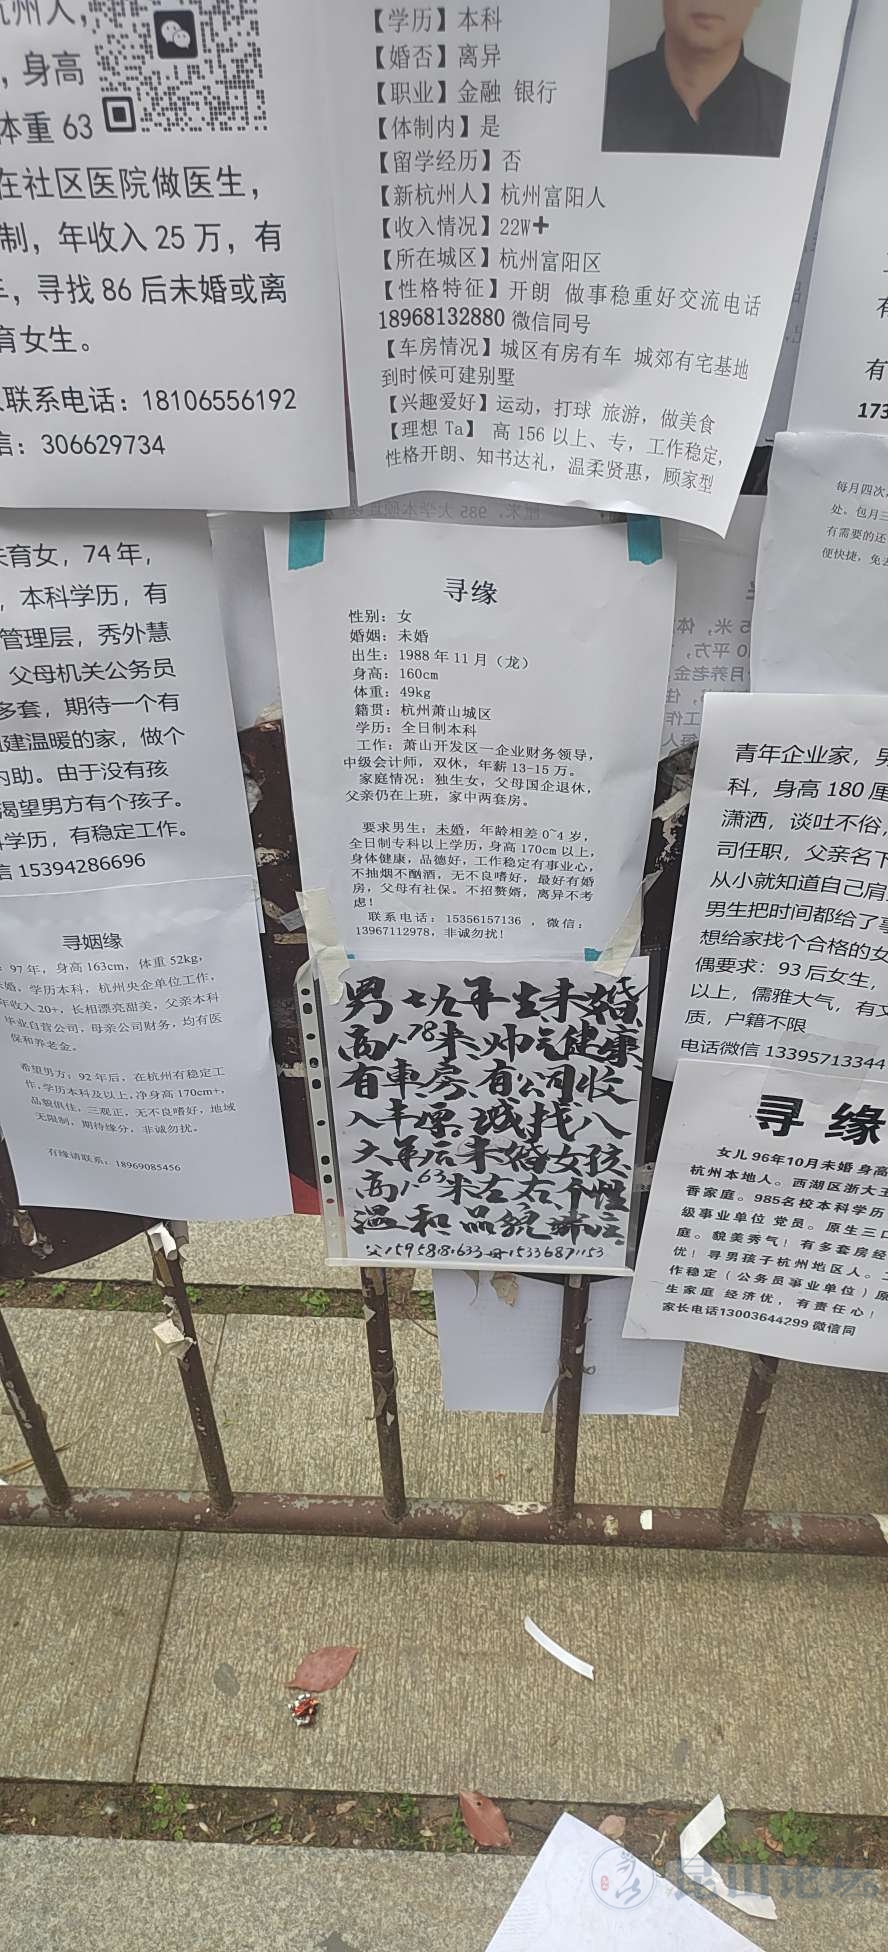 杭州人，
，身高
体重 63
在社区医院做医生，
制，年收入 25 万，有
寻找 86 后未婚或离
育女生。
联系电话：18106556192
信：306629734
【学历】本科
【婚否】离异
【职业】金融 银行
【体制内】是
【留学经历】否
【新杭州人】杭州富阳人
【收入情况】22W+
【所在城区】杭州富阳区
【性格特征】开朗 做事稳重好交流电话
18968132880 微信同号
【车房情况】城区有房有车 城郊有宅基地
到时候可建别墅
【兴趣爱好】运动，打球 旅游，做美食
【理想 Ta】 高 156 以上、专，工作稳定,
性格开朗、知书达礼，温柔贤惠，顾家型
173
每月四次
处，包月三
有需要的还
便快捷，免
未育女，74 年，
，本科学历，有
管理层，秀外慧
父母机关公务员
多套，期待一个有
建温暖的家，做个
内助。由于没有孩
渴望男方有个孩子。
科学历，有稳定工作。
信 15394286696
寻缘
性别：女
婚姻：未婚
出生：1988 年 11 月（龙）
身高：160cm
体重：49kg
籍贯：杭州萧山城区
学历：全日制本科
工作：萧山开发区一企业财务领导，
中级会计师，双休，年薪 13-15 万。
家庭情况：独生女，父母国企退休，
父亲仍在上班，家中两套房。
要求男生：未婚，年龄相差 0~4 岁，
全日制专科以上学历，身高 170cm 以上，
身体健康，品德好，工作稳定有事业心，
不抽烟不酗酒，无不良嗜好，最好有婚
房，父母有社保。不招赘婚，离异不考
虑！
联系电话：15356157136 ，微信：
13967112978，非诚勿扰！
青年企业家，男
科，身高 180 厘
潇洒，谈吐不俗，
司任职，父亲名下
从小就知道自己肩
男生把时间都给了事
想给家找个合格的女
偶要求：93 后女生，
以上，儒雅大气，有文
质，户籍不限
电话微信 13395713344
寻姻缘
：97年，身高163cm，体重52kg，
未婚，学历本科，杭州央企单位工作，
年收入20+，长相漂亮甜美，父亲本科
毕业自营公司，母亲公司财务，均有医
保和养老金。
希望男方：92年后，在杭州有稳定工
作,学历本科及以上,净身高170cm+,
品貌俱佳，三观正，无不良嗜好，地域
无限制，期待缘分，非诚勿扰。
有缘请联系：18969085456
男七九年生未婚、
高1.78米、帅气健康、
有車、房、有公司收
入丰厚。诚找八
六年后未婚女孩、
高1.63米左右、个性
温和品貌端庄。
父15958181633母15336871153
寻 缘
女儿 96年10月未婚 身高
杭州本地人。西湖区浙大
香家庭。985名校本科学历
级事业单位 党员。原生三口
庭。貌美秀气！有多套房经
优！寻男孩子杭州地区人。
作稳定（公务员事业单位）原
生家庭 经济优，有责任心！
家长电话13003644299 微信同
昆山论坛